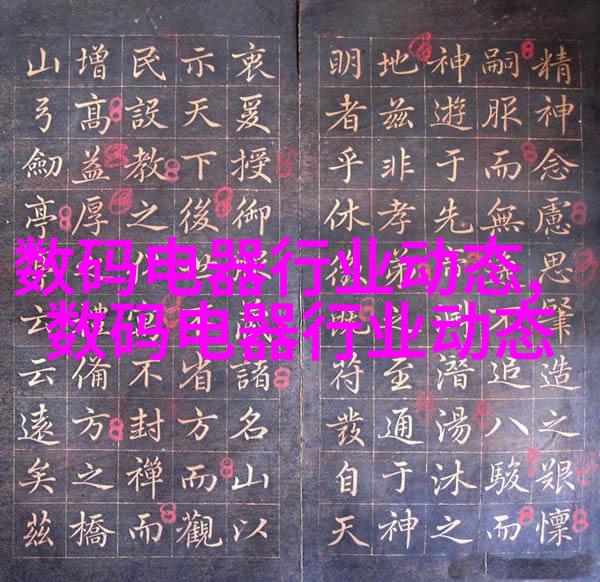 数码电器行业动态,
数码电器行业动态
精神念慮思肇造之艱懍
嗣服而無追八駿而
神遊于先潛湯沐之
地茲非孝弟之至通于神
明者乎休符發自天
衷爰授御諸名山以
示天下後省方而觀
民設教之不封禪而
增高益厚禮方之橋
山弓劍亭云云遠矣茲